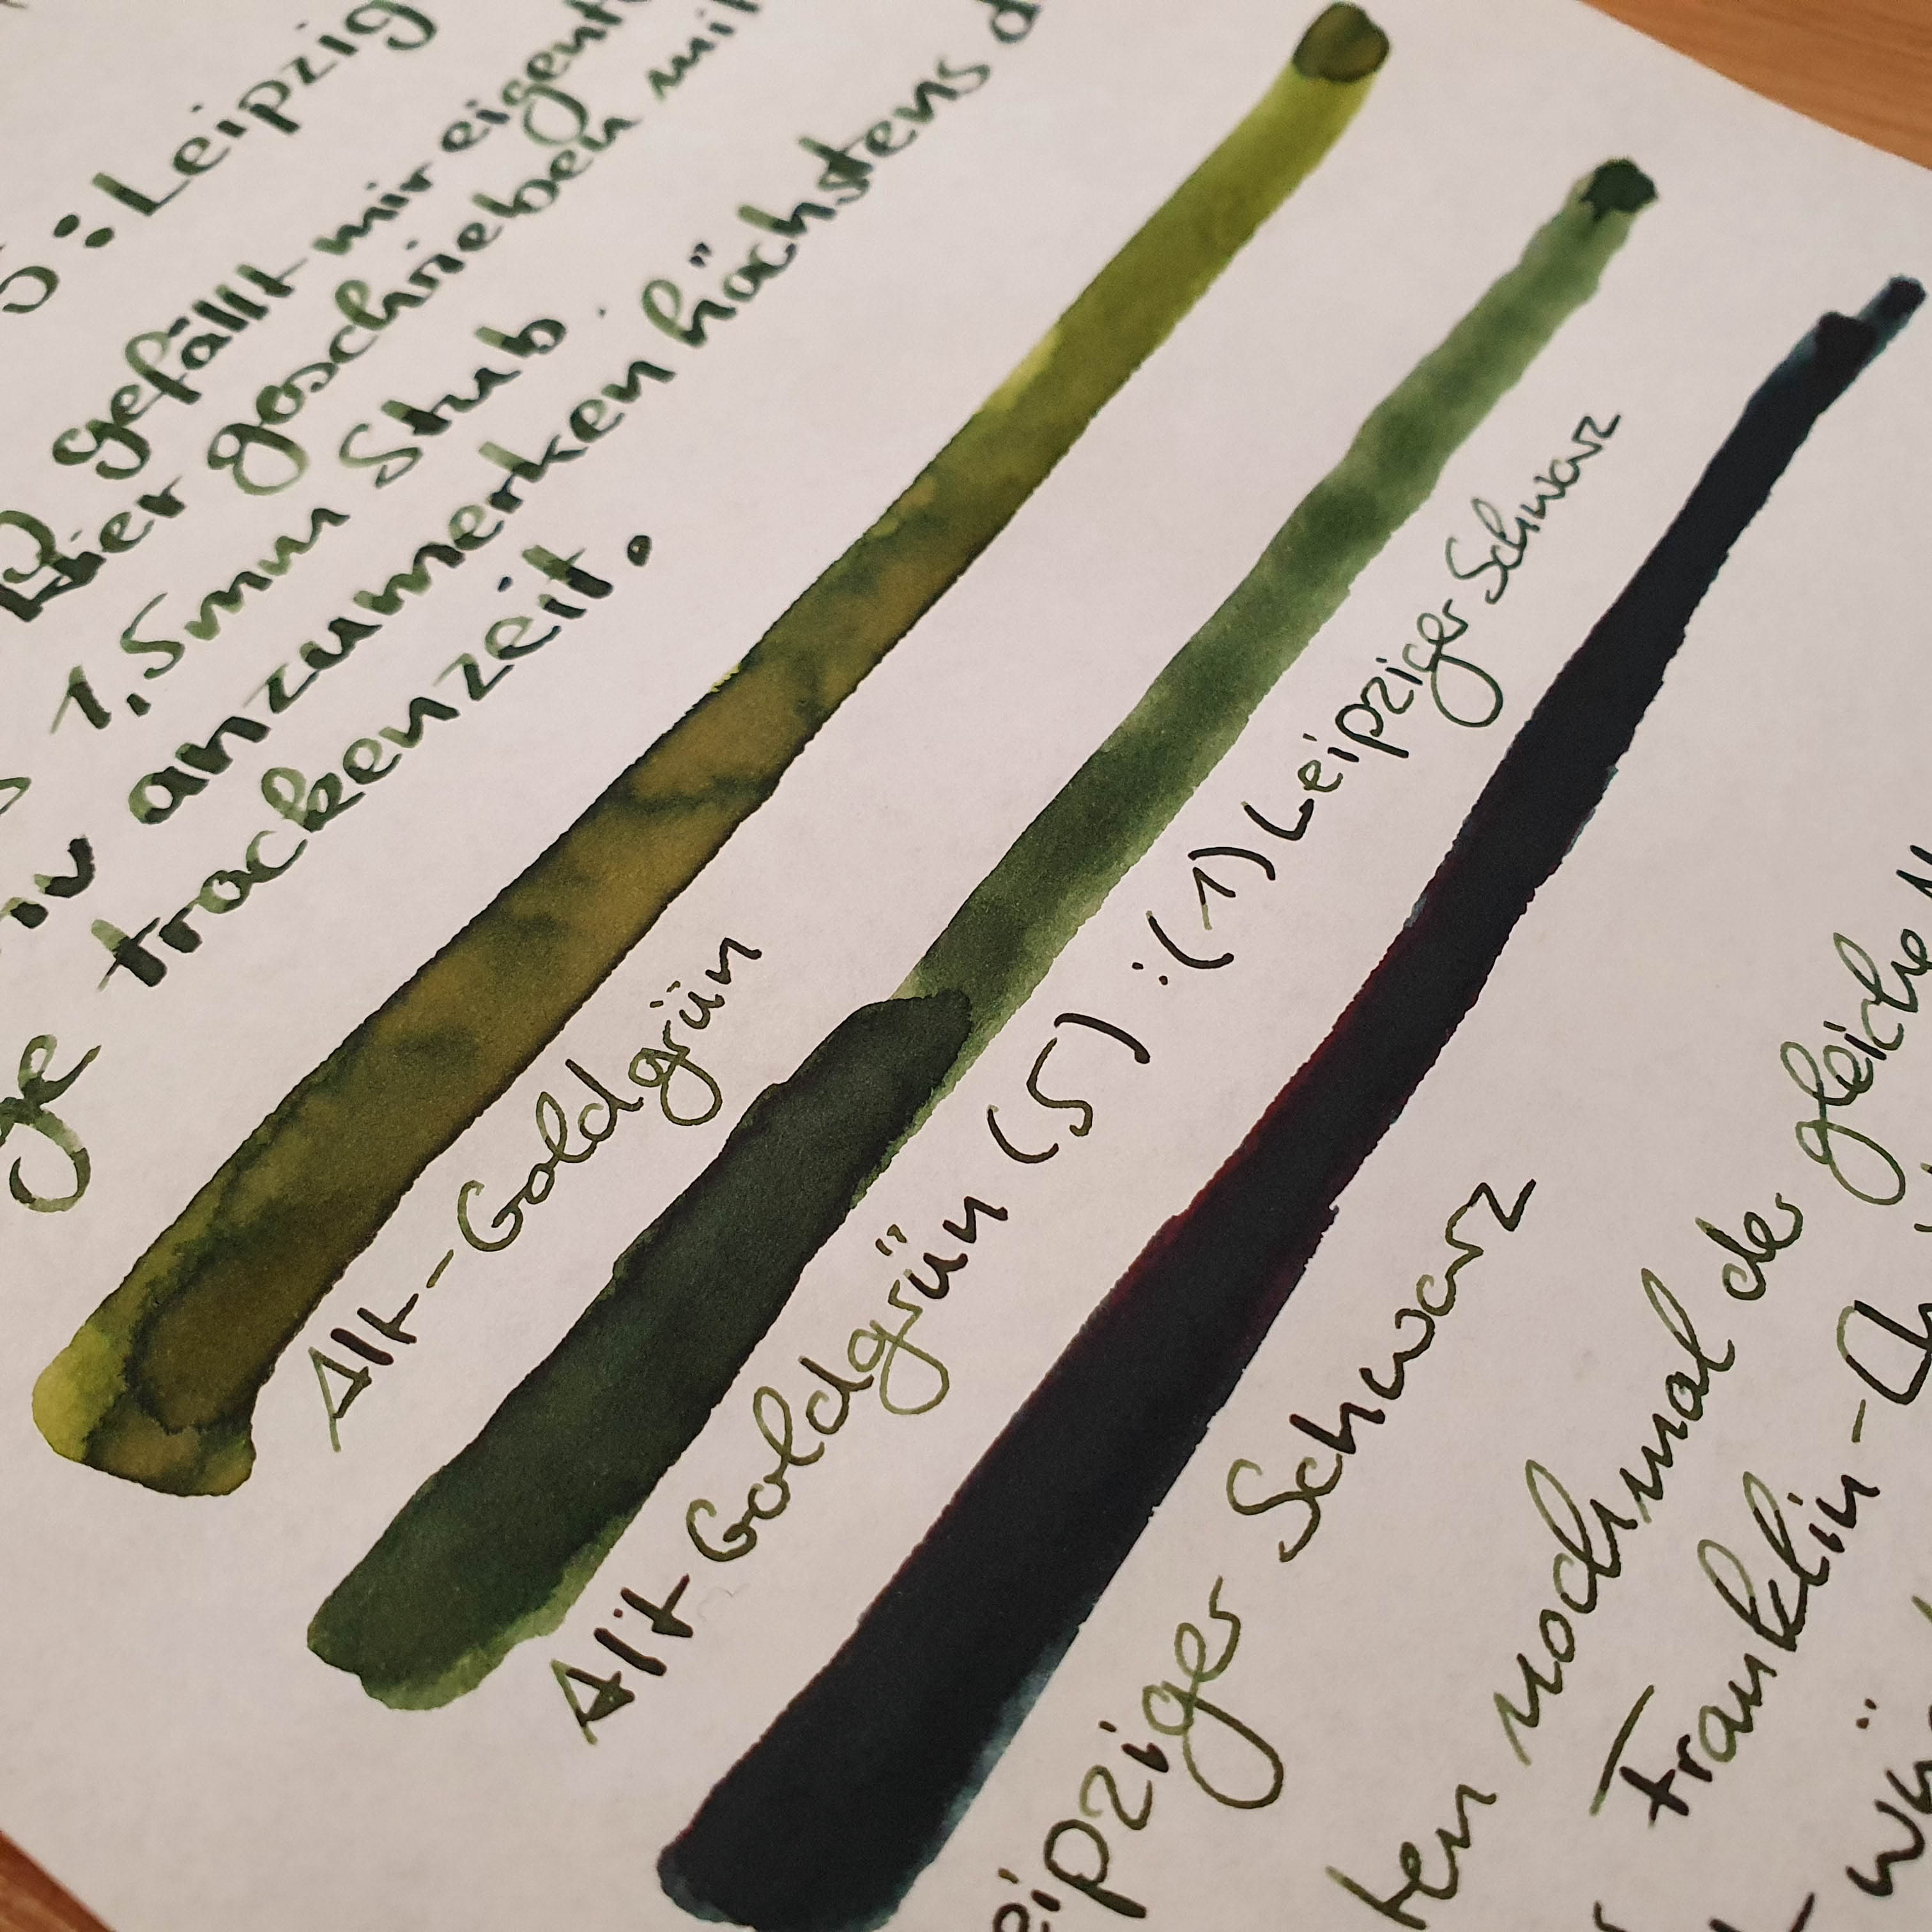 : Leipzig
gefällt mir eigent
hier geschrieben mit
1,5mm Stub.
anzumerken höchstens d
trockenzeit.
Alt-Goldgrün
Alt-Goldgrün (5) : (1) Leipziger Schwarz
eipziger Schwarz
ten nochmal der gleiche
Franklin-Ch